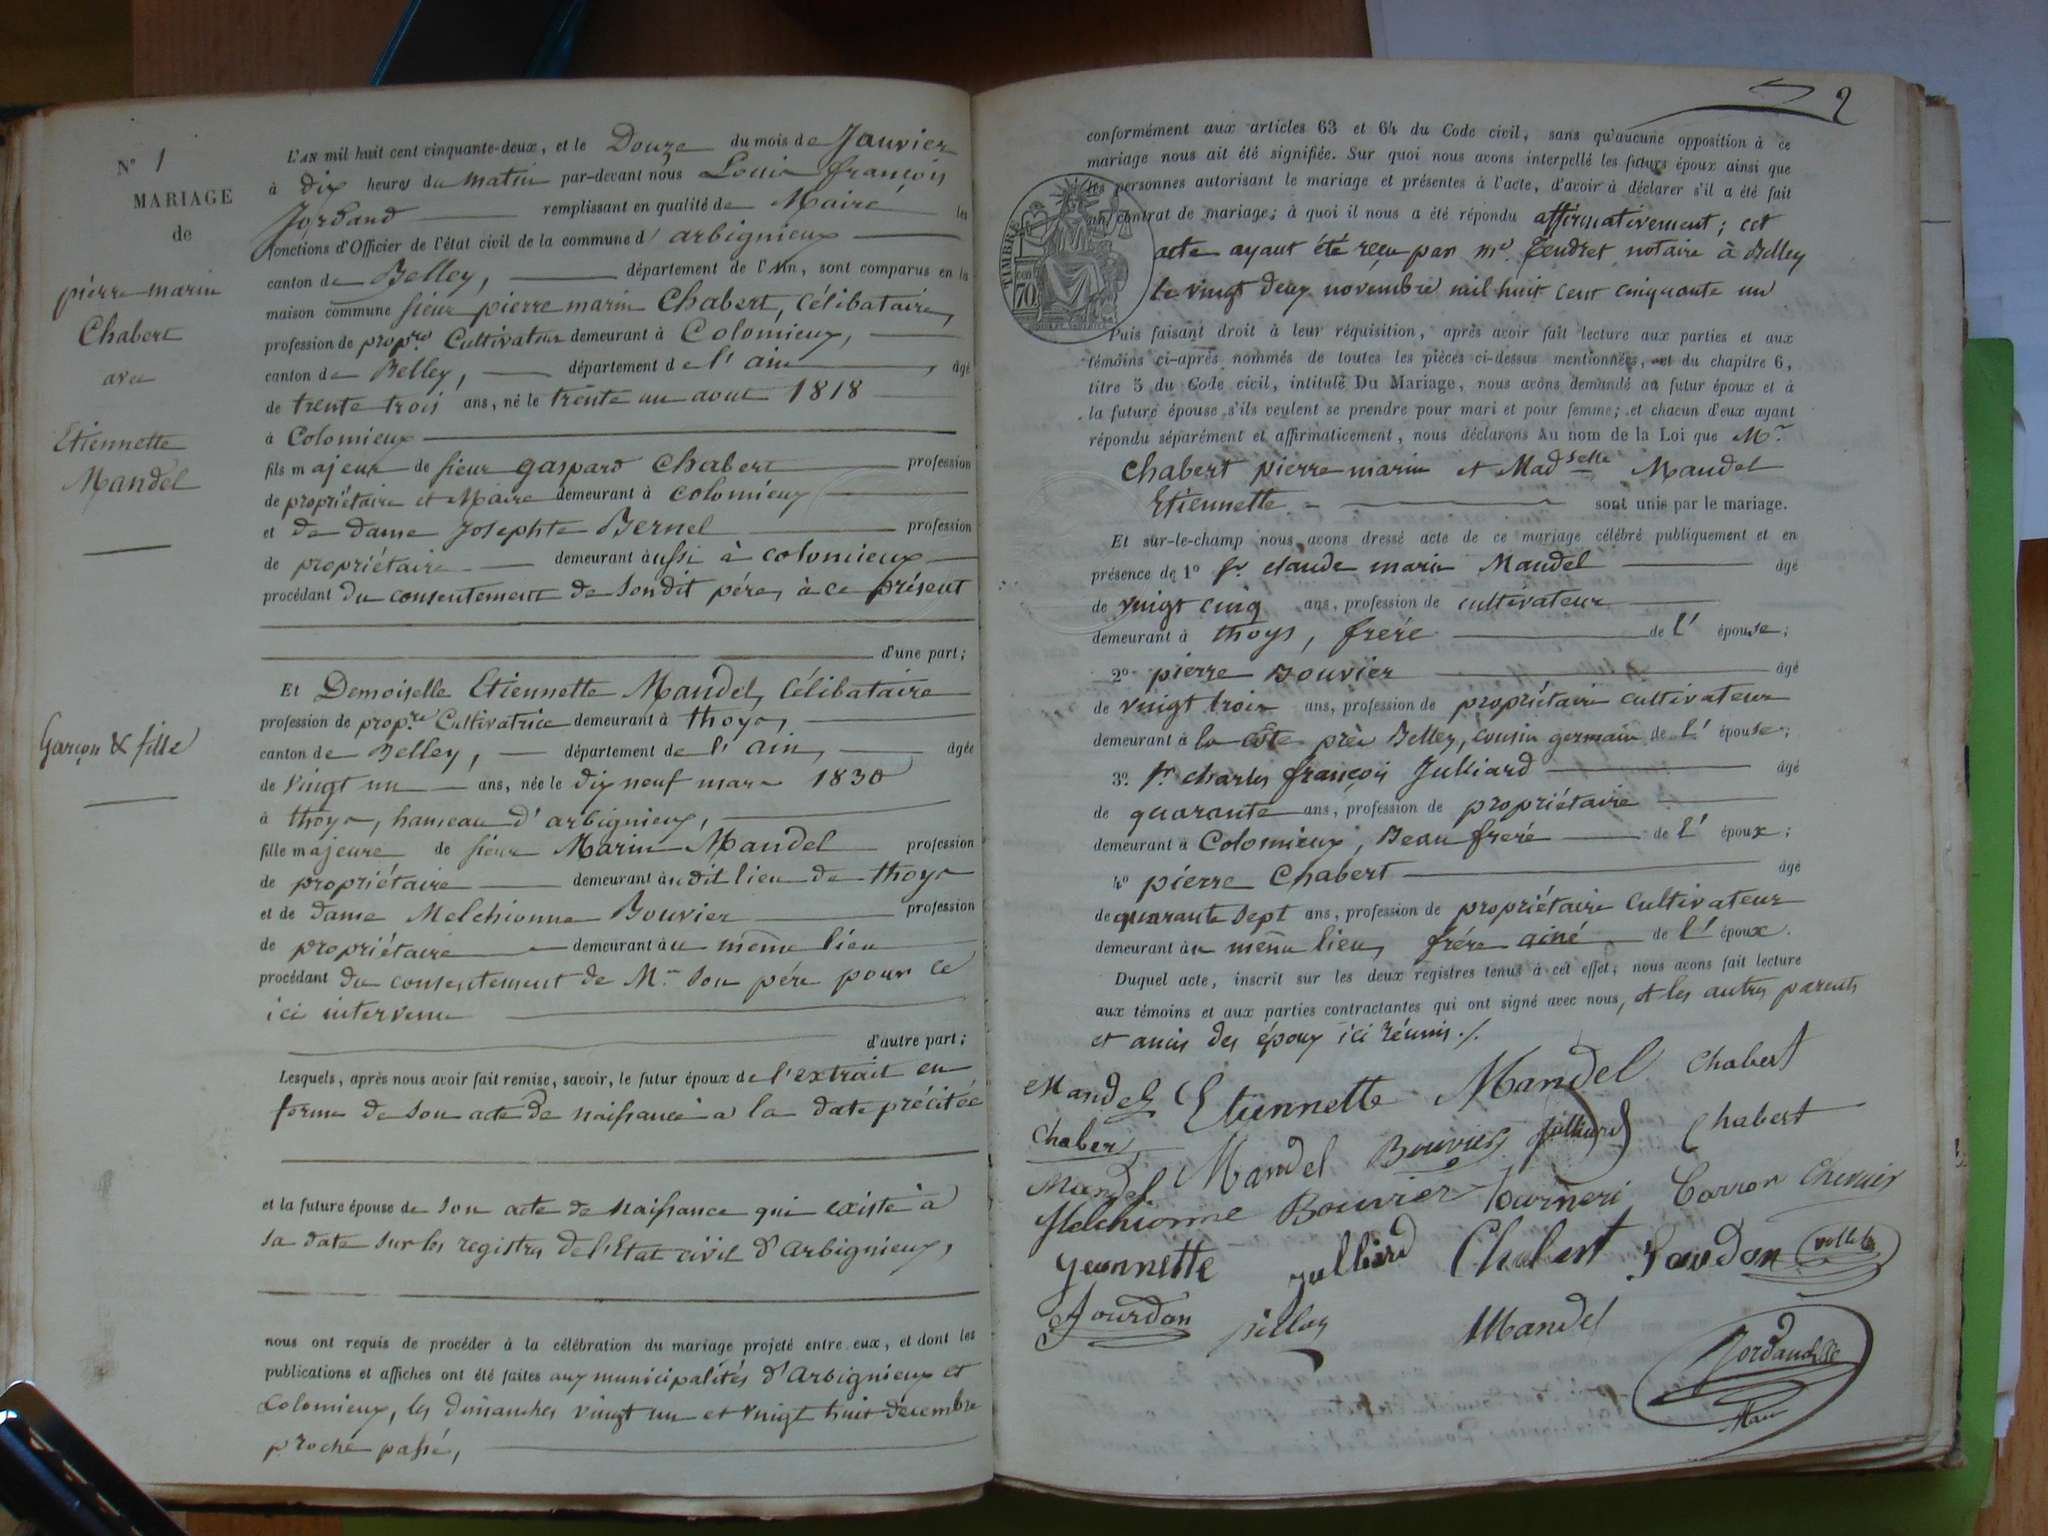 N° 1
MARIAGE
de
pierre marin
Chabert
avec
Etiennette
Mandel
Garçon & fille
L'AN mil huit cent cinquante-deux, et le Douze du mois de Janvier
à dix heures du matin par-devant nous Louis françois
Jordand remplissant en qualité de Maire les
fonctions d'Officier de l'état civil de la commune d'arbignieux
canton de Belley, département de l'Ain, sont comparus en la
maison commune sieur pierre marin Chabert, Célibataire,
profession de propre Cultivateur demeurant à Colomieux,
canton de Belley, département de l'ain, âgé
de trente trois ans, né le trente un aout 1818
à Colomieux
fils majeur de sieur gaspard Chabert profession
de propriétaire et Maire demeurant à colomieux
et de dame Josephte Bernel profession
de propriétaire demeurant aussi à colomieux
procédant du consentement de son dit père, à ce présent
d'une part;
Et Demoiselle Etiennette Mandel, Célibataire
profession de propre Cultivatrice demeurant à thoys,
canton de Belley, département de l'ain, âgée
de vingt un ans, née le dix neuf mars 1830
à thoys, hameau d'arbignieux,
fille majeure de sieur Marin Mandel profession
de propriétaire demeurant audit lieu de thoys
et de dame Melchionne Bouvier profession
de propriétaire demeurant au même lieu
procédant du consentement de Mr son père pour ce
ici intervenu
d'autre part;
Lesquels, après nous avoir fait remise, savoir, le futur époux de l'extrait en
forme de son acte de naissance a la date précitée
et la future épouse de son acte de naissance qui existe à
sa date sur les registres de l'Etat civil d'arbignieux,
nous ont requis de procéder à la célébration du mariage projeté entre eux, et dont les
publications et affiches ont été faites aux municipalités d'Arbignieux et
Colomieux, les dimanches vingt un et vingt huit décembre
proche passé,
2
conformément aux articles 63 et 64 du Code civil, sans qu'aucune opposition à ce
mariage nous ait été signifiée. Sur quoi nous avons interpellé les futurs époux ainsi que
les personnes autorisant le mariage et présentes à l'acte, d'avoir à déclarer s'il a été fait
un contrat de mariage; à quoi il nous a été répondu affirmativement; cet
acte ayant été reçu par me. Tendret notaire à Belley
le vingt deux novembre mil huit cent cinquante un
TIMBRE
70
Puis faisant droit à leur réquisition, après avoir fait lecture aux parties et aux
témoins ci-après nommés de toutes les pièces ci-dessus mentionnées, et du chapitre 6,
titre 5 du Code civil, intitulé Du Mariage, nous avons demandé au futur époux et à
la future épouse s'ils veulent se prendre pour mari et pour femme; et chacun d'eux ayant
répondu séparément et affirmaticement, nous déclarons Au nom de la Loi que Mr
Chabert pierre marin et Madselle Mandel
Etiennette sont unis par le mariage.
Et sur-le-champ nous avons dressé acte de ce mariage célébré publiquement et en
présence de 1° Sr claude marin Mandel âgé
de vingt cinq ans, profession de cultivateur
demeurant à thoys, frère de l'épouse;
2° pierre Bouvier âgé
de vingt trois ans, profession de propriétaire cultivateur
demeurant à la côte près Belley, cousin germain de l'épouse;
3° Sr charles françois Julliard âgé
de quarante ans, profession de propriétaire
demeurant à Colomieux, Beau frère de l'époux;
4° pierre Chabert âgé
de quarante sept ans, profession de propriétaire Cultivateur
demeurant au même lieu, frère ainé de l'époux.
Duquel acte, inscrit sur les deux registres tenus à cet effet, nous avons fait lecture
aux témoins et aux parties contractantes qui ont signé avec nous, et les autres parents
et amis des époux ici réunis./.
Mandel Etiennette Mandel Chabert
Chaber Mandel Bouvier Julliard Chabert
Mandel
Melchionne Bouvier Tourneri Carron Chevrier
Jeannette Julliard Chabert Goudon
Jourdan pillon Mandel
Jordand